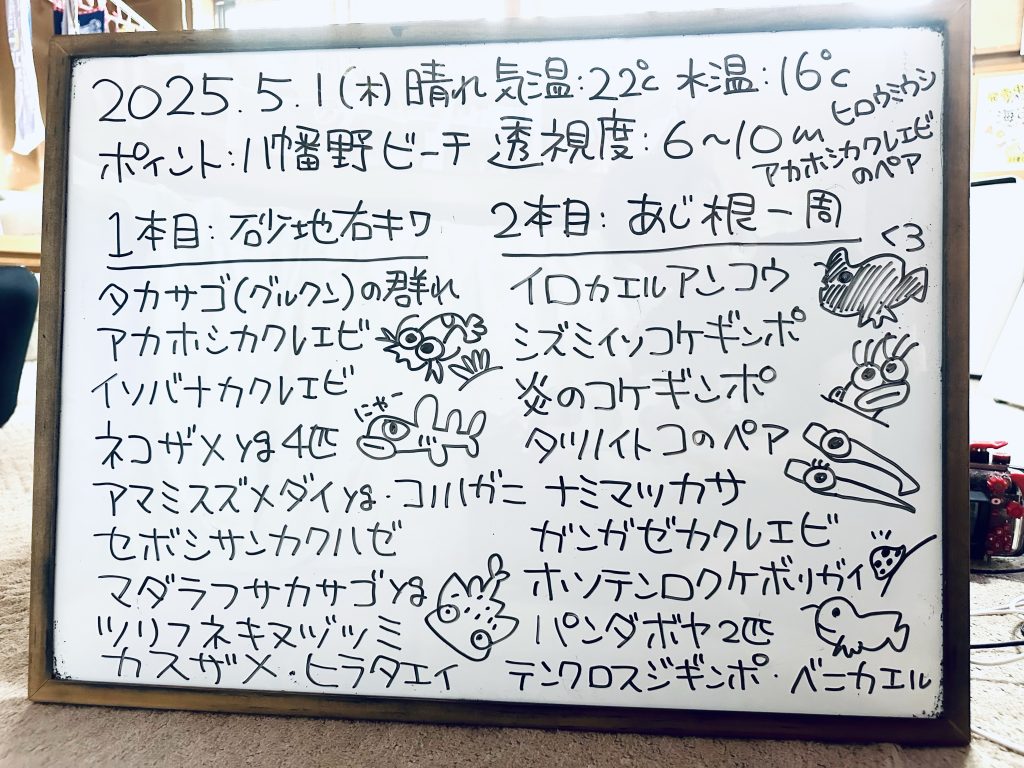 2025.5.1(木)晴れ 気温:22℃ 水温:16℃
ポイント:八幡野ビーチ 透視度:6〜10m
ヒロウミウシ
アカホシカクレエビ
のペア
1本目:砂地右キワ
タカサゴ(グルクン)の群れ
アカホシカクレエビ
イソバナカクレエビ
ネコザメyg 4匹
にゃー
アマミスズメダイyg・コノハガニ
セボシサンカクハゼ
マダラフサカサゴyg
ツリフネキヌヅツミ
カスザメ・ヒラタエイ
2本目:あじ根一周
イロカエルアンコウ
<3
シズミイソコケギンポ
炎のコケギンポ
タツノイトコのペア
ナミマツカサ
ガンガゼカクレエビ
ホソテンロクケボリガイ
パンダボヤ2匹
テンクロスジギンポ・ベニカエル